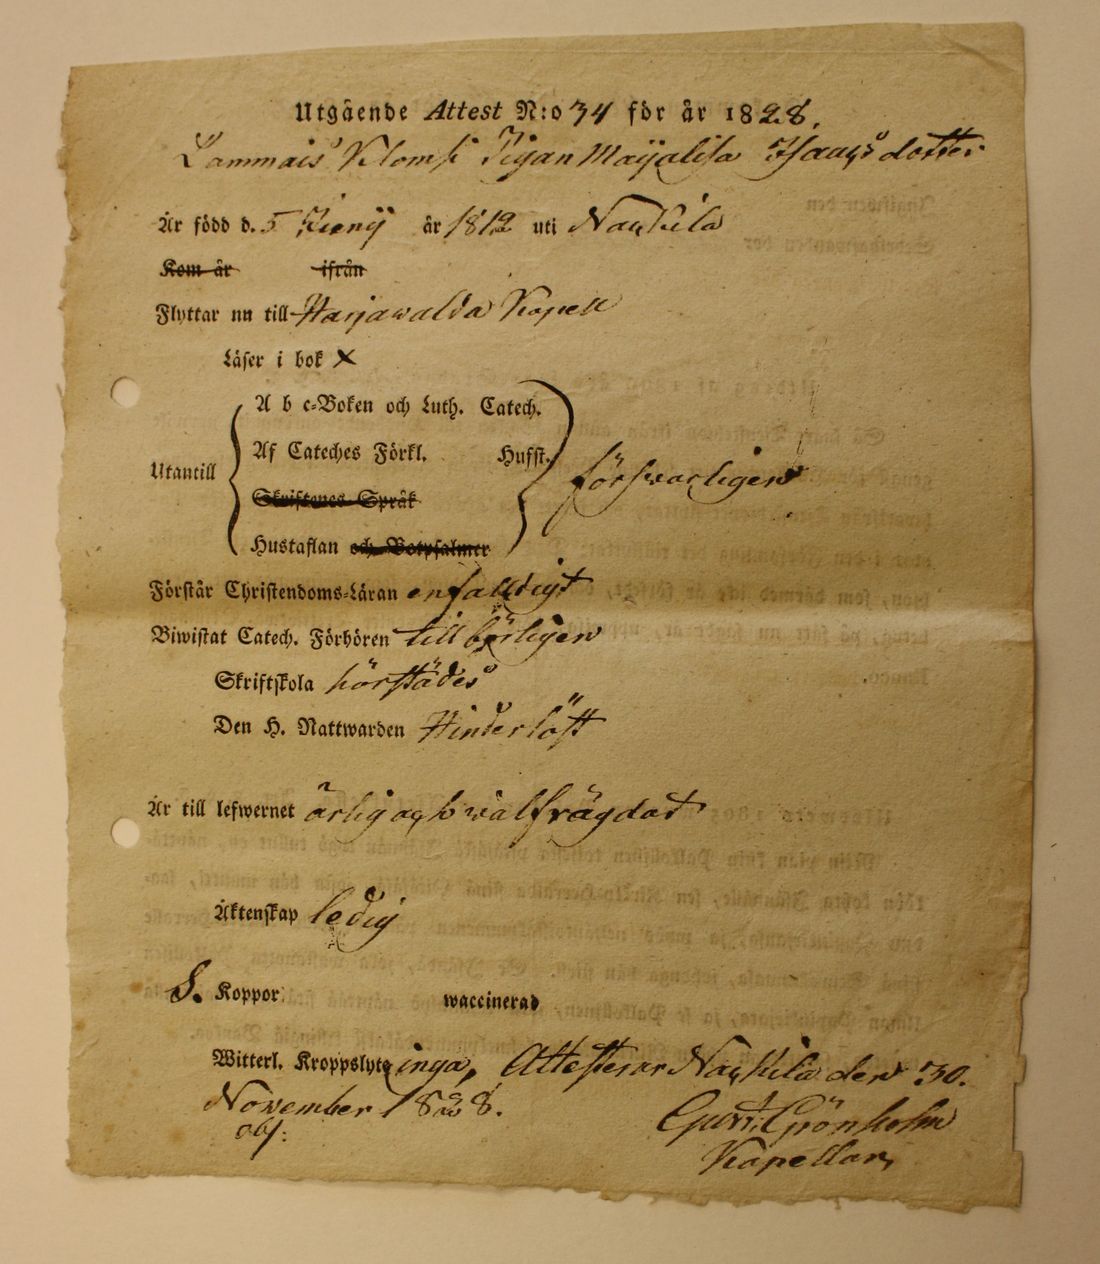 Utgående Attest N:o 34 för år 1828.
Lammais Klomsi Pigan Maijalisa Isaacsdotter
Är född d. 5 Junij år 1812 uti Nackila
Kom år ifrån
Flyttar nu till Harjawalda Kapell
Läser i bok x
A b c-Boken och Luth. Catech.
Af Cateches Förkl. Husst.
Utantill försvarligen
Skriftenes Språk
Hustaflan och Botpsalmer
Förstår Christendoms-Läran enfalldigt
Biwistat Catech. Förhören tillbörligen
Skriftskola härstädes
Den H. Nattwarden Hinderlöst
Är till lefwernet ärlig och wälfrägdat
Äktenskap ledig
S. Koppor waccinerad
Witterl. Kroppslyte inga, Attesterar Nackila den 30.
November 1828.
obs:
Gust. Grönholm
Kapellan,